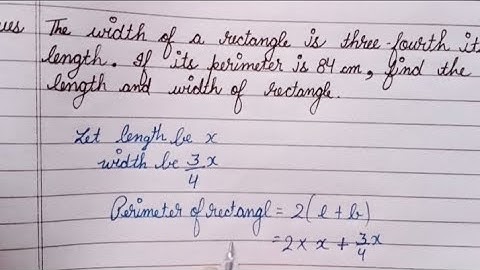 ues The width of a rectangle is three-fourth its
length. If its perimeter is 84 cm, find the
length and width of rectangle.
Let length be x
width be 3/4 x
Perimeter of rectangl = 2(l+b)
= 2 × x + 3/4 x